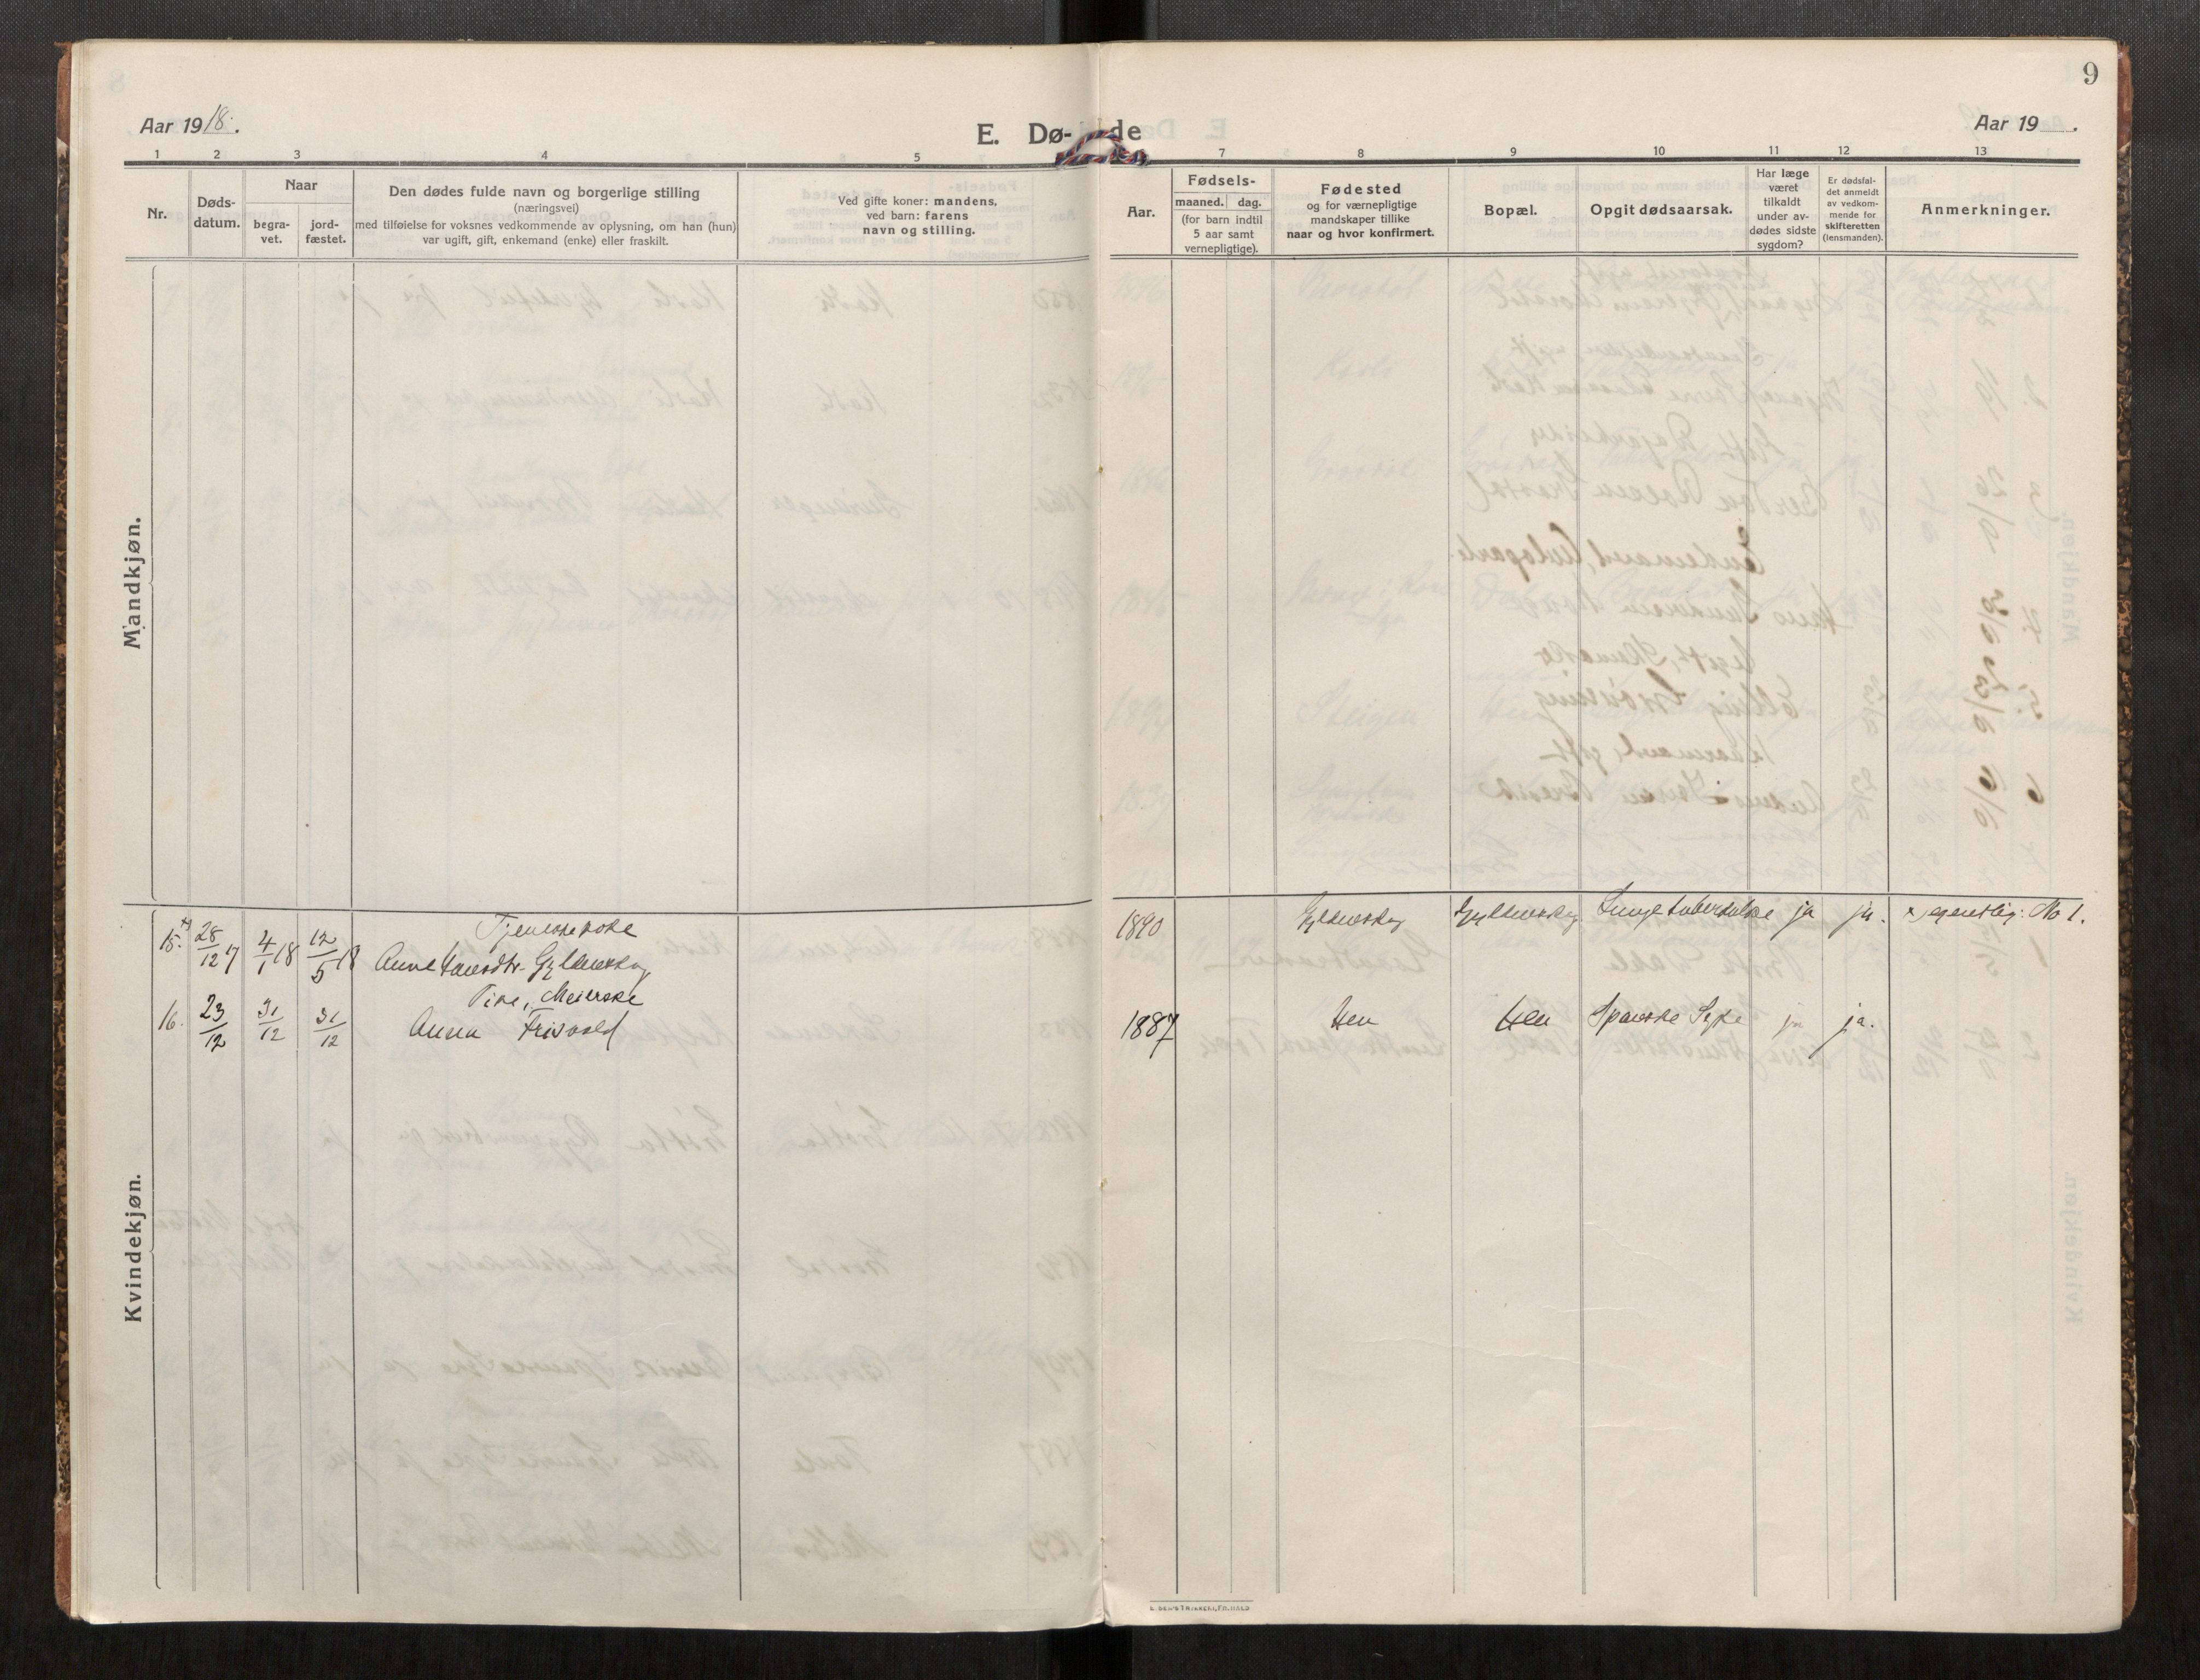 9
Aar 1918.
E. Dø-
de
Aar 19 .
1 2 3 4 5 7 8 9 10 11 12 13
Nr.
Døds-
datum.
Naar
begra-
vet.
jord-
fæstet.
Den dødes fulde navn og borgerlige stilling
(næringsvei)
med tilføielse for voksnes vedkommende av oplysning, om han (hun)
var ugift, gift, enkemand (enke) eller fraskilt.
Ved gifte koner: mandens,
ved barn: farens
navn og stilling.
Aar.
Fødsels-
maaned. dag.
(for barn indtil
5 aar samt
vernepligtige).
Fødested
og for værnepligtige
mandskaper tillike
naar og hvor konfirmert.
Bopæl.
Opgit dødsaarsak.
Har læge
været
tilkaldt
under av-
dødes sidste
sygdom?
Er dødsfal-
det anmeldt
av vedkom-
mende for
skifteretten
(lensmanden).
Anmerkninger.
Mandkjøn.
Kvindekjøn.
Tjeneste
15. x) 28/12 17 4/1 18 12/5 18 Anne Hansdtr. Gyldenskog 1890 Gyldenskog Gyldenskog Lungetuberkulose ja ja. x) egentlig: No 1.
Pike, Meierske
16. 23/12 31/12 31/12 Anna Frisvold 1887 Hen Hen Spanske Syke ja ja.